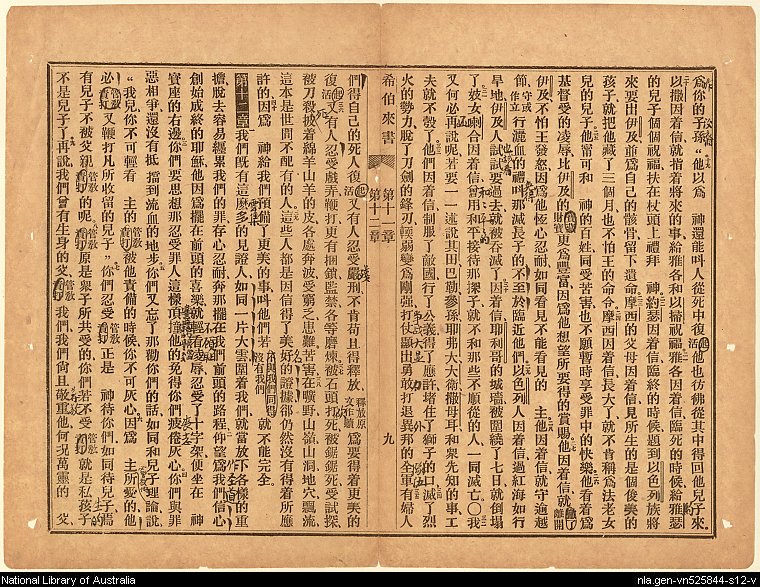 為你的子孫 他以為 神還能叫人從死中復活他也彷彿從其中得回他兒子來
以撒因着信就指着將來的事給雅各和以掃祝福雅各因着信臨死的時候給約瑟
的兒子個個祝福扶在杖頭上禮拜 神約瑟因着信臨終的時候題到以色列族將
來要出伊及並為自己的骸骨留下遺命摩西的父母因着信見所生的是個俊美的
孩子就把他藏了三個月也不怕王的命令摩西因着信長大了就不肯稱為法老女
兒的兒子他甯可和 神的百姓同受苦害也不願暫時享受罪中的快樂他看着為
基督受的凌辱比伊及的財寶更為豐富因為他想望所要得的賞賜他因着信就離開
伊及不怕王發怒因為他恆心忍耐如同看見不能看見的 主他因着信就守逾越
節守或作立行灑血的禮叫那滅長子的不至於臨近他們以色列人因着信過紅海如行
旱地伊及人試試要過去就被吞滅了因着信耶利哥的城墻被圍繞了七日就倒塌
了妓女喇合因着信曾用和平接待那探子就不和那些不順從的人一同滅亡〇我
又何必再說呢若要一一述說其田巴勒參孫耶弗大大衛撒母耳和衆先知的事工
夫就不彀了他們因着信制服了敵國行了公義得了應許堵住了獅子的口滅了烈
火的勢力脫了刀劍的鋒刃輭弱變為剛强打仗顯出勇敢打退異邦的全軍有婦人
希伯來書 第十一章 第十二章 九
們得自己的死人復活又有人忍受嚴刑不肯苟且得釋放 為要得着更美的
復活又有人忍受戲弄鞭打更有捆鎖監禁各等磨煉被石頭打死被鋸鋸死受試探
被刀殺披着綿羊山羊的皮各處奔波受窮乏患難苦害在曠野山嶺山洞地穴飄流
這本是世間不配有的人這些人都是因信得了美好的證據卻仍然沒有得着所應
許的因為 神給我們預備了更美的事叫他們若沒有我們就不能完全
第十二章我們既有這麼多的見證人如同一片大雲圍着我們就當放下各樣的重
擔脫去容易纏累我們的罪存心忍耐奔那擺在我們前頭的路程仰望為我們信心
創始成終的耶穌他因為擺在前頭的喜樂就輕看凌辱忍受了十字架便坐在 神
寶座的右邊你們要思想那忍受罪人這樣頂撞他的免得你們疲倦灰心你們與罪
惡相爭還沒有抵擋到流血的地步你們又忘了那勸你們的話如同和兒子理論說
我兒你不可輕看 主的管教被他責備的時候你不可灰心因為 主所愛的他
必管教又鞭打凡所收留的兒子 你們忍受管教正是 神待你們如同待兒子焉
有兒子不被父親管教的呢管教原是衆子所共受的你們若不受管教就是私孩子
不是兒子了再說我們曾有生身的父管教我們我們尙且敬重他何况萬靈的 父
National Library of Australia
nla.gen-vn525844-s12-v